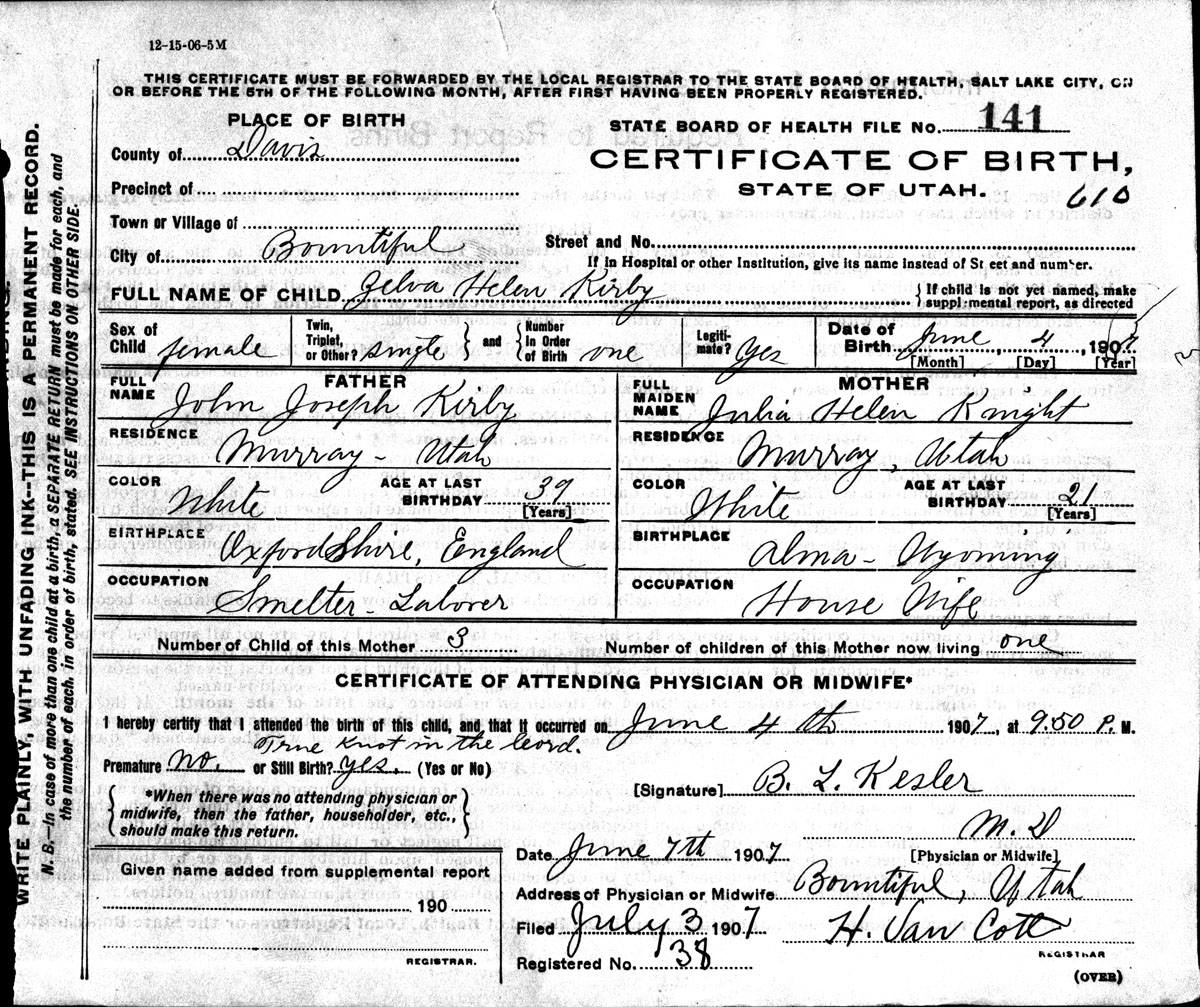 12-15-06-5M
THIS CERTIFICATE MUST BE FORWARDED BY THE LOCAL REGISTRAR TO THE STATE BOARD OF HEALTH, SALT LAKE CITY, ON
OR BEFORE THE 5TH OF THE FOLLOWING MONTH, AFTER FIRST HAVING BEEN PROPERLY REGISTERED.
PLACE OF BIRTH
STATE BOARD OF HEALTH FILE No. 141
County of Davis
CERTIFICATE OF BIRTH,
Precinct of
STATE OF UTAH. 610
Town or Village of
Street and No.
City of Bountiful
If in Hospital or other Institution, give its name instead of St eet and number.
FULL NAME OF CHILD Zelva Helen Kirby { If child is not yet named, make
suppl mental report, as directed
Sex of Child female Twin, Triplet, or Other? single and Number In Order of Birth one Legiti-mate? Yes Date of Birth June 4, 1907
[Month] [Day] [Year]
FATHER
FULL NAME John Joseph Kirby
RESIDENCE Murray - Utah
COLOR White AGE AT LAST BIRTHDAY 39 [Years]
BIRTHPLACE OxfordShire, England
OCCUPATION Smelter-Laborer
MOTHER
FULL MAIDEN NAME Julia Helen Knight
RESIDENCE Murray, Utah
COLOR White AGE AT LAST BIRTHDAY 21 [Years]
BIRTHPLACE Alma - Wyoming
OCCUPATION House Wife
Number of Child of this Mother 3 Number of children of this Mother now living one
CERTIFICATE OF ATTENDING PHYSICIAN OR MIDWIFE*
I hereby certify that I attended the birth of this child, and that it occurred on June 4th 1907, at 9:50 P. M.
True Knot in the Cord.
Premature no. or Still Birth? yes. (Yes or No)
[Signature] B. L. Kesler
M. D
[Physician or Midwife]
*When there was no attending physician or
midwife, then the father, householder, etc.,
should make this return.
Date June 7th 1907
Given name added from supplemental report
190
REGISTRAR.
Address of Physician or Midwife Bountiful, Utah
Filed July 3 1907 H. Van Cott
REGISTRAR
Registered No. 38
(OVER)
WRITE PLAINLY, WITH UNFADING INK--THIS IS A PERMANENT RECORD.
N. B.--In case of more than one child at a birth, a SEPARATE RETURN must be made for each, and
the number of each, in order of birth, stated. SEE INSTRUCTIONS ON OTHER SIDE.